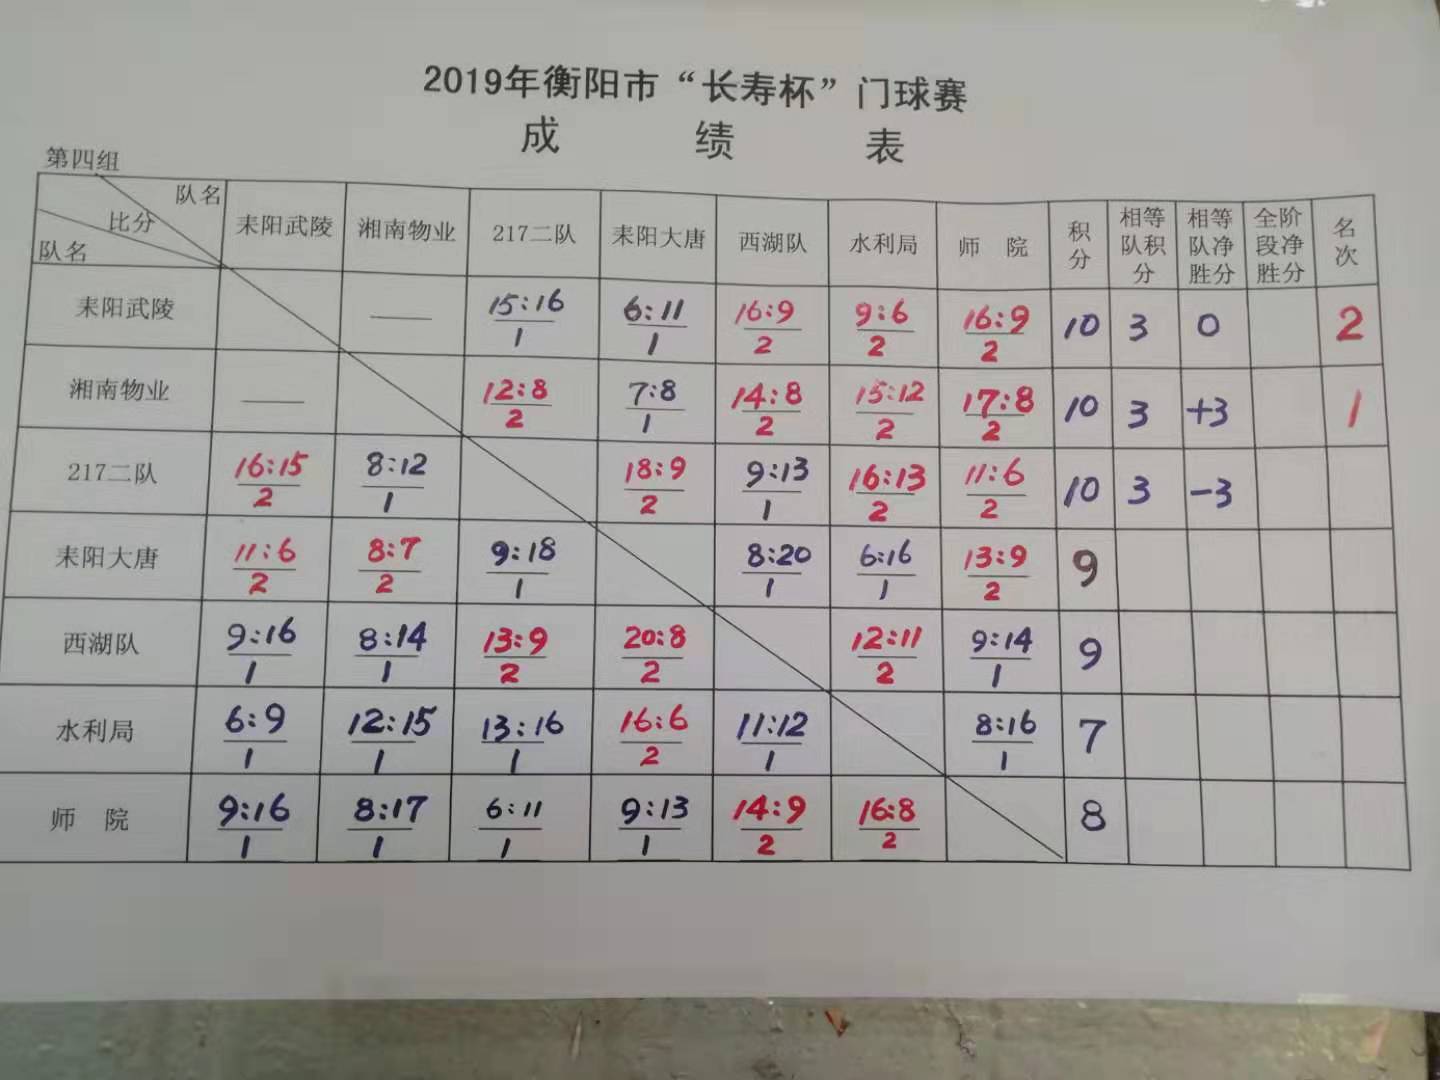 2019年衡阳市“长寿杯”门球赛
成 绩 表
第四组
队名 比分 队名 耒阳武陵 湘南物业 217二队 耒阳大唐 西湖队 水利局 师 院 积分 相等队积分 相等队净胜分 全阶段净胜分 名次
耒阳武陵 — 15:16 1 6:11 1 16:9 2 9:6 2 16:9 2 10 3 0 2
湘南物业 — 12:8 2 7:8 1 14:8 2 15:12 2 17:8 2 10 3 +3 1
217二队 16:15 2 8:12 1 18:9 2 9:13 1 16:13 2 11:6 2 10 3 -3
耒阳大唐 11:6 2 8:7 2 9:18 1 8:20 1 6:16 1 13:9 2 9
西湖队 9:16 1 8:14 1 13:9 2 20:8 2 12:11 2 9:14 1 9
水利局 6:9 1 12:15 1 13:16 1 16:6 2 11:12 1 8:16 1 7
师 院 9:16 1 8:17 1 6:11 1 9:13 1 14:9 2 16:8 2 8